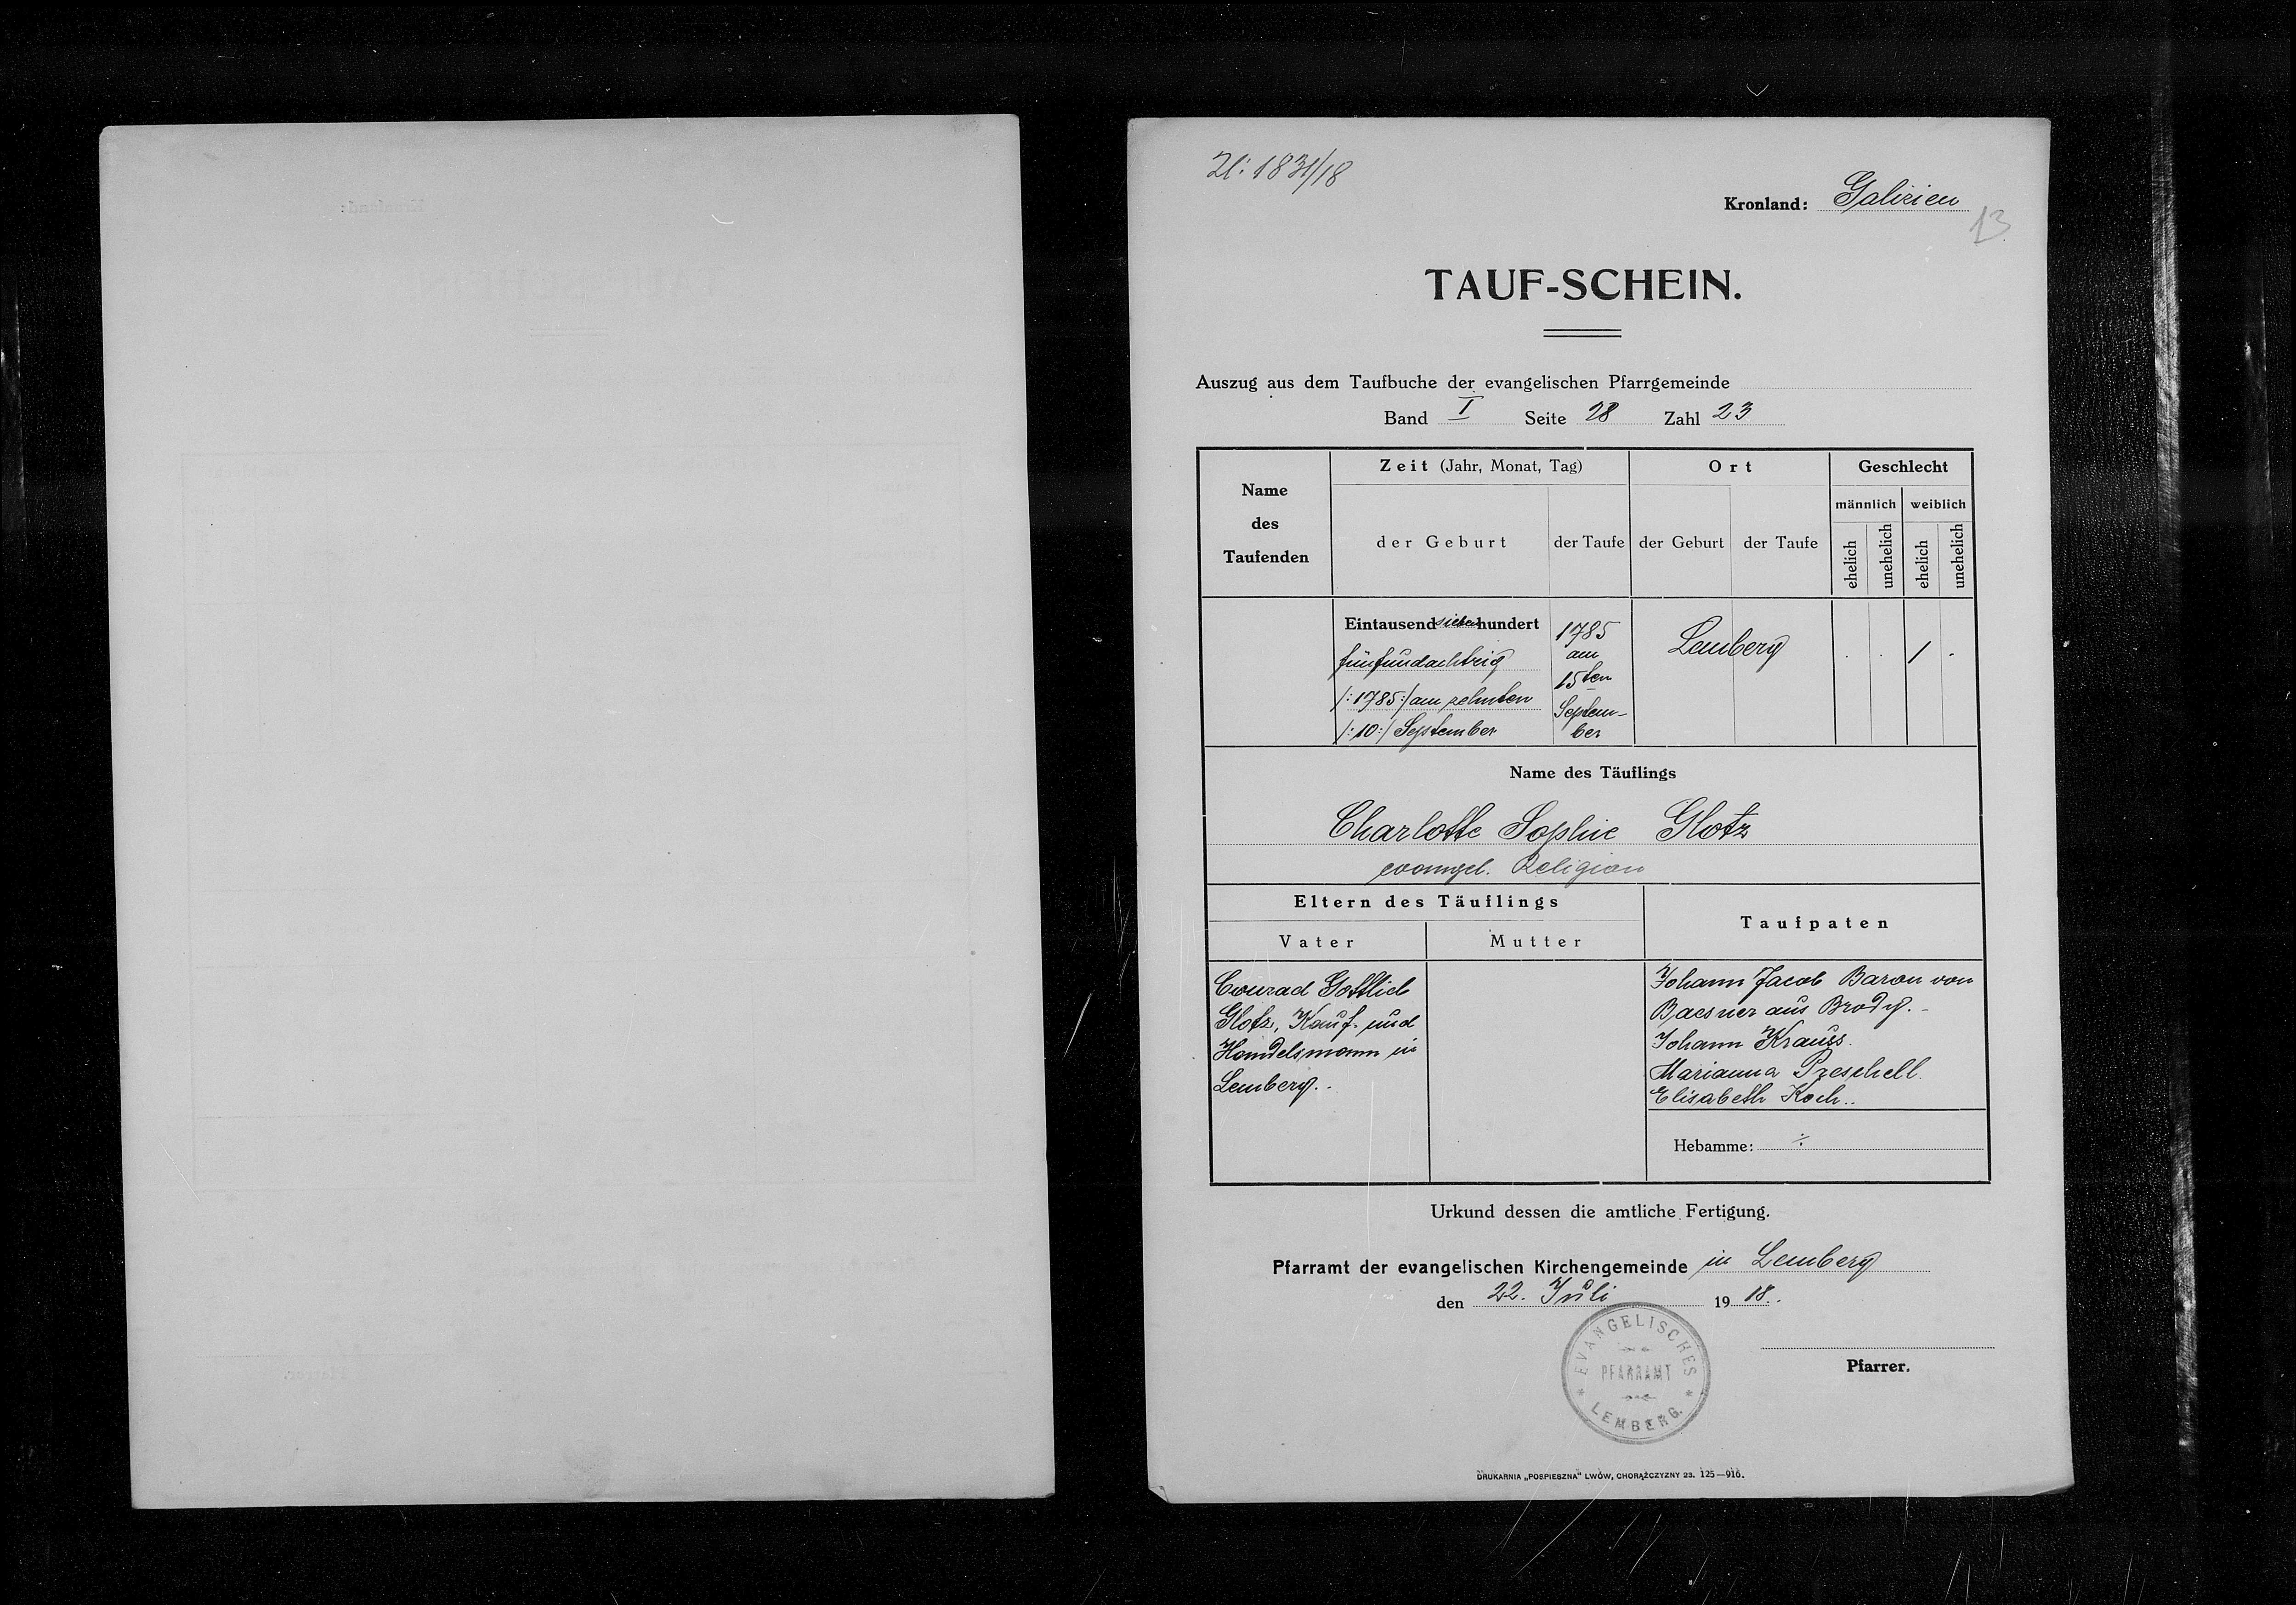 Zl: 1831/18
Kronland: Galizien
13
TAUF-SCHEIN.
Auszug aus dem Taufbuche der evangelischen Pfarrgemeinde
Band I Seite 28 Zahl 23
Name des Taufenden
Zeit (Jahr, Monat, Tag)
der Geburt
der Taufe
Ort
der Geburt
der Taufe
Geschlecht
männlich
weiblich
ehelich
unehelich
ehelich
unehelich
Eintausendsiebenhundert
fünfundachtzig
/:1785:/ am zehnten
/:10:/ September
1785
am
15ten
Septem-
ber
Lemberg
. . 1 .
Name des Täuflings
Charlotte Sophie Glotz
evangel. Religion
Eltern des Täuflings
Vater
Mutter
Taufpaten
Conrad Gottlieb
Glotz, Kauf- und
Handelsmann in
Lemberg.
Johann Jacob Baron von
Baesner aus Brody.-
Johann Krauss.
Marianna Przeschell.
Elisabeth Koch..
Hebamme: ÷
Urkund dessen die amtliche Fertigung.
Pfarramt der evangelischen Kirchengemeinde in Lemberg
den 22. Juli 1918.
EVANGELISCHES
PFARRAMT
* LEMBERG. *
Pfarrer.
DRUKARNIA „POSPIESZNA" LWÓW, CHORĄŻCZYZNY 23. 125—916.